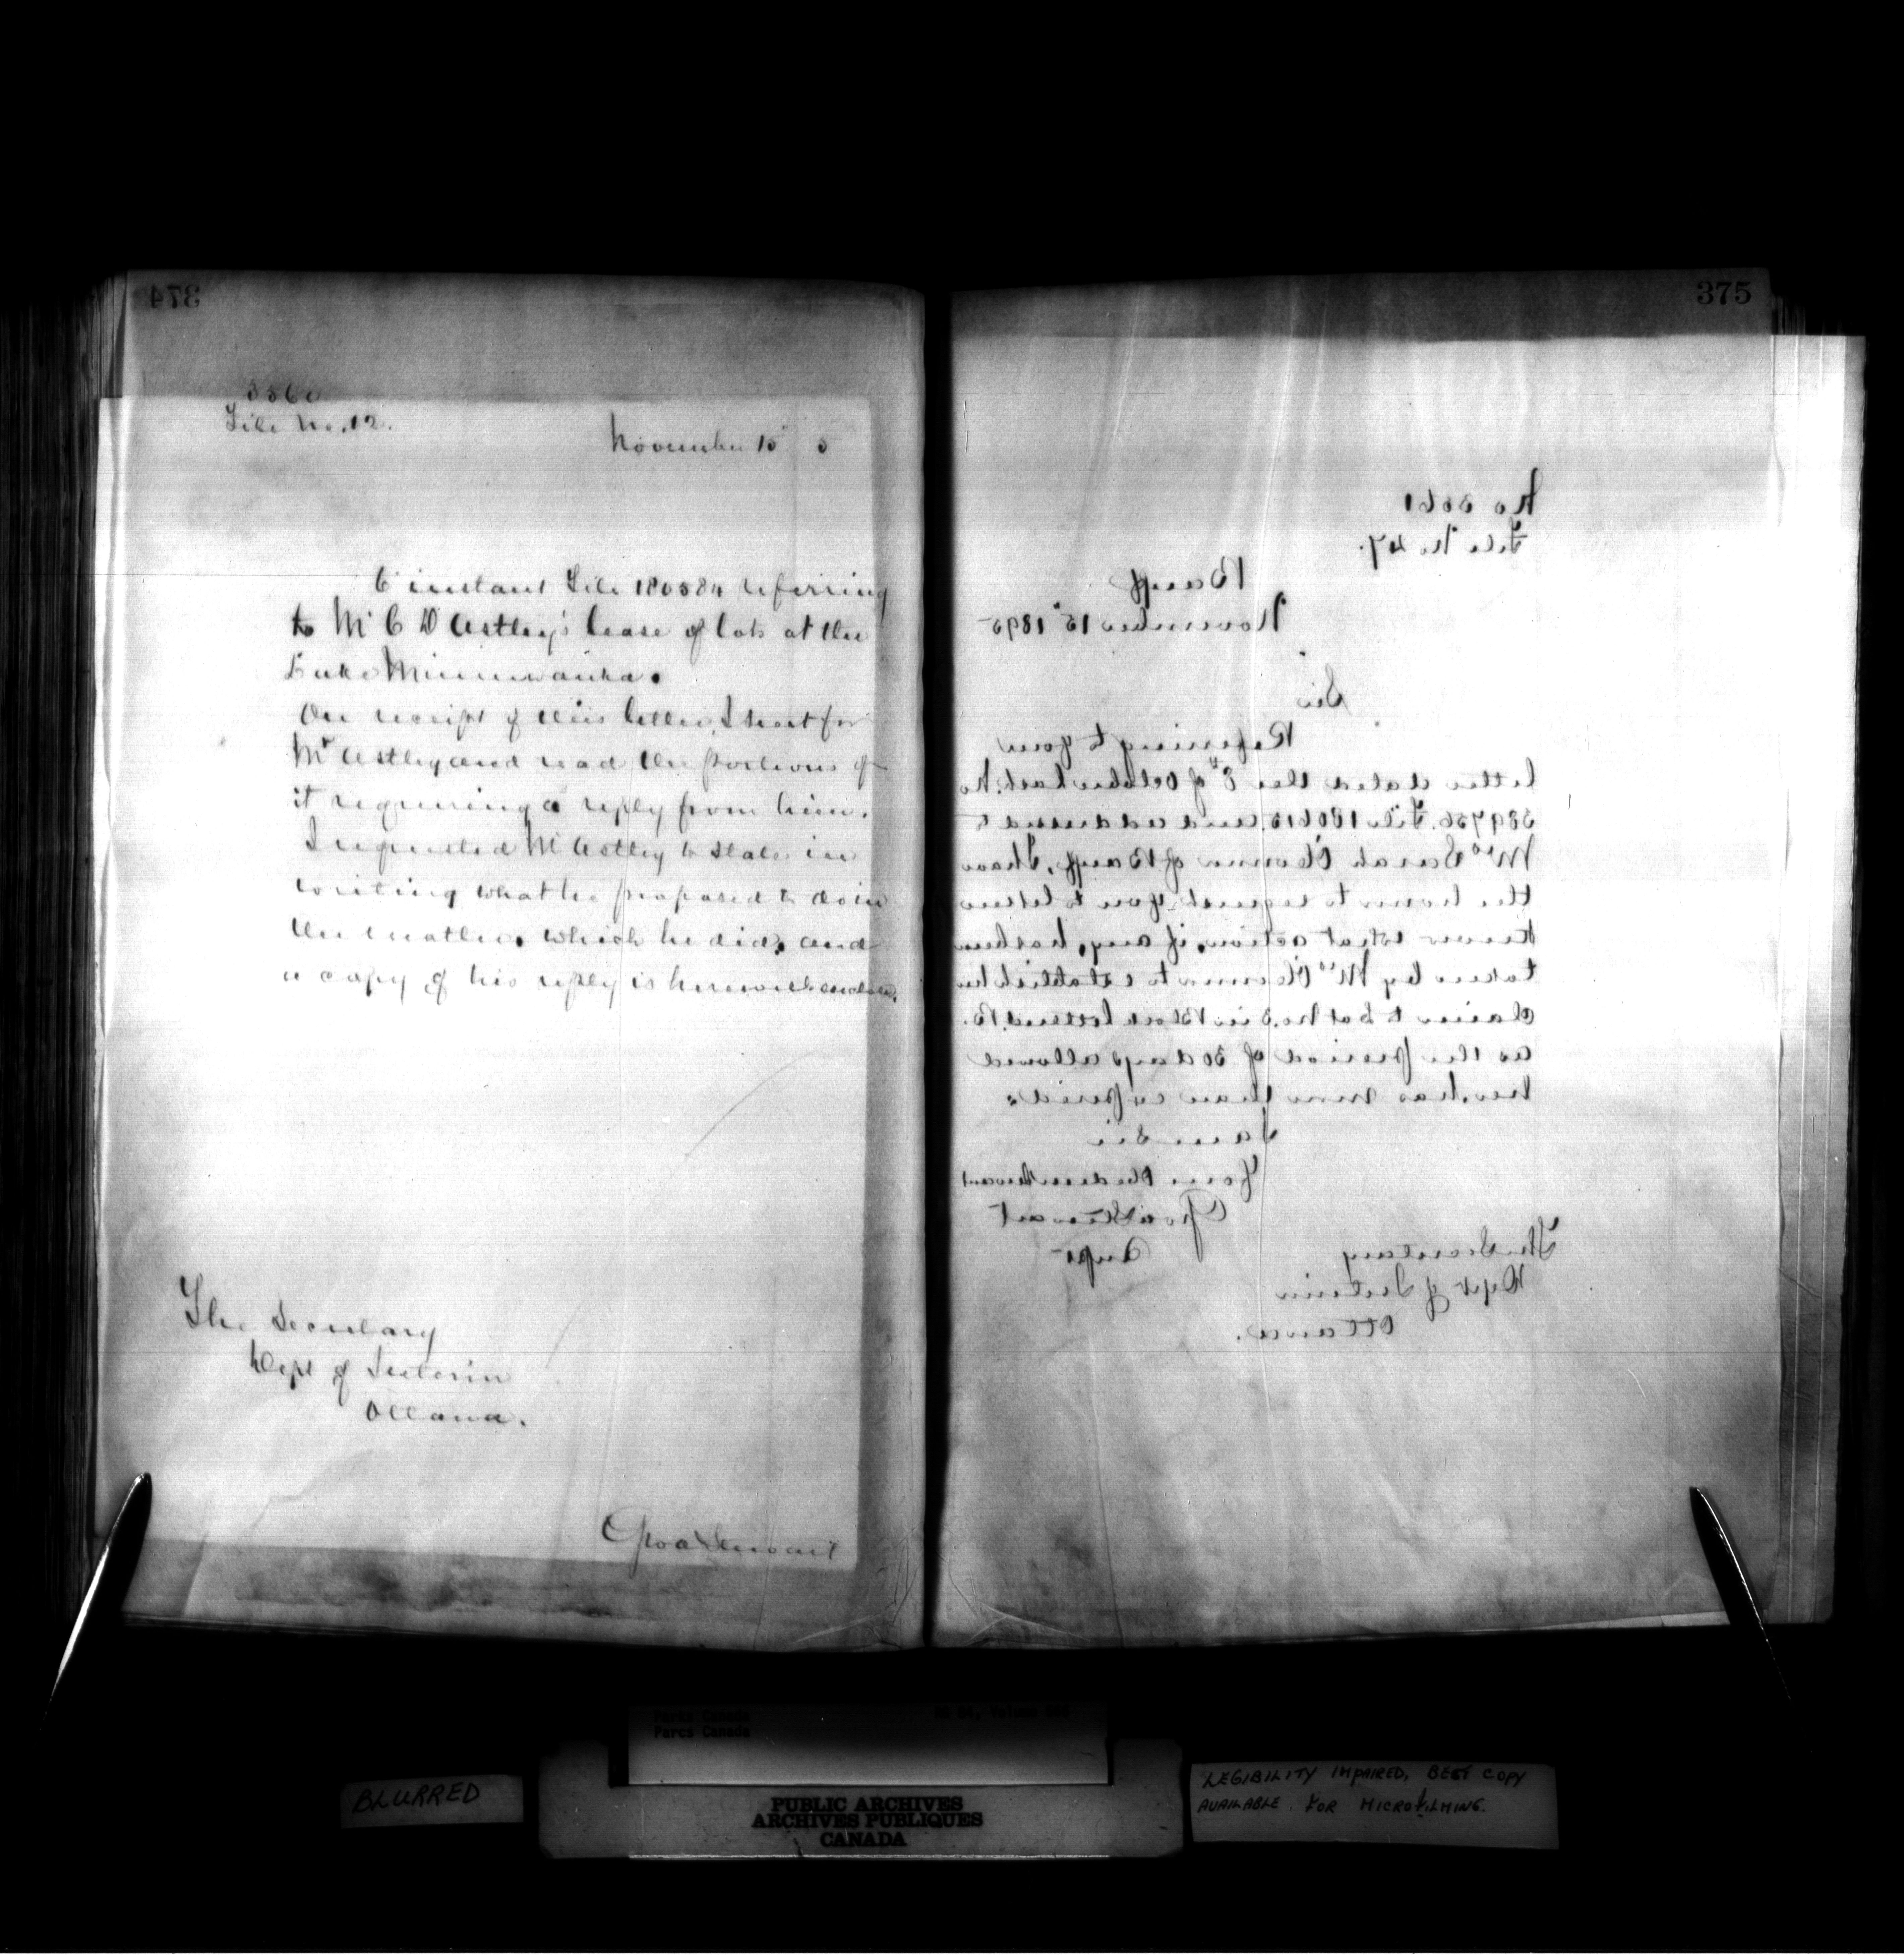 374
3560
File No. 12.
November 15" 5
6 instant File 180584 referring
to Mr C D Astley's lease of lots at the
Lake Minnewanka.
On receipt of this letter, I sent for
Mr Astley and read the portions of
it requiring a reply from him.
I requested Mr Astley to state in
writing what he proposed to do in
the matter, which he did, and
a copy of his reply is herewith enclosed.
The Secretary
Dept of Interior
Ottawa.
Geo A Stewart
375
No 3561
File No 47.
Banff
November 15" 1895
Sir
Referring to your
letter dated the 8th of October last. No
File 180615. and addressed to
Mrs Sarah of Banff, I have
the honor to request you to let me
know what action, if any, has been
taken by Mrs to establish her
claim to Lot No. 3 in Block lettered B.
as the period of 30 days allowed
her, has more than expired.
I am Sir
Your Obedient Servant
Geo A Stewart
Supt
The Secretary
Dept of Interior
Ottawa.
Parks Canada
Parcs Canada
BLURRED
PUBLIC ARCHIVES
ARCHIVES PUBLIQUES
CANADA
LEGIBILITY IMPAIRED, BEST COPY
AVAILABLE FOR MICROFILMING.